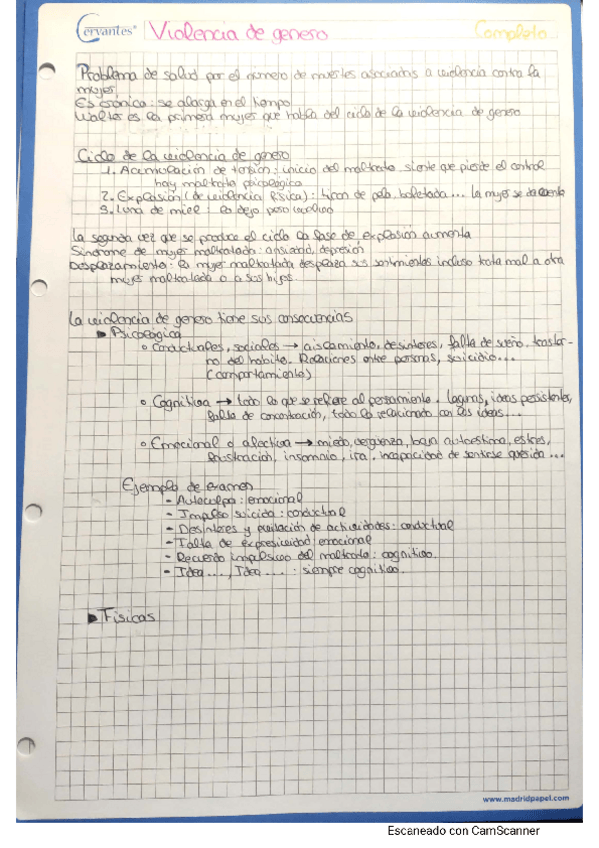 Cervantes®
Violencia de genero
Completo
Problema de salud por el numero de muertes asociados a violencia contra la
mujer.
Es crónico: se alarga en el tiempo
Walter es la primera mujer que habla del ciclo de la violencia de genero
Ciclo de la violencia de genero
1. Acumulación de tensión: inicio del maltrato, siente que pierde el control
hay maltrato psicológico
2. Explosión (de violencia física): tiron de pelo, bofetada... la mujer se da cuenta
3. Luna de miel: la dejo
La segunda vez que se produce el ciclo la fase de explosión aumenta
Síndrome de mujer maltratada: ansiedad, depresión
Desplazamiento: la mujer maltratada desplaza sus sentimientos incluso trata mal a otra
mujer maltratada o a sus hijos.
La violencia de genero tiene sus consecuencias
Psicológica
Conductuales, sociales → aislamiento, desinteres, falta de sueño, trastor-
no del habito. Relaciones entre personas, suicidio...
(comportamiento)
Cognitiva → todo lo que se refiere al pensamiento. lagunas, ideas persistentes,
falta de concentración, todo lo relacionado con las ideas...
Emocional o afectiva → miedo, verguenza, baja autoestima, estres,
frustración, insomnio, ira, incapacidad de sentirse querida...
Ejemplo de examen
- Autoculpa: emocional
- Impulso suicida: conductual
- Desinteres y evitación de actividades: conductual
- Falta de expresividad: emocional
- Recuerdo impulsivo del maltrato: cognitivo.
- Idea..., Idea....: siempre cognitivo.
Físicas
www.madridpapel.com
Escaneado con CamScanner